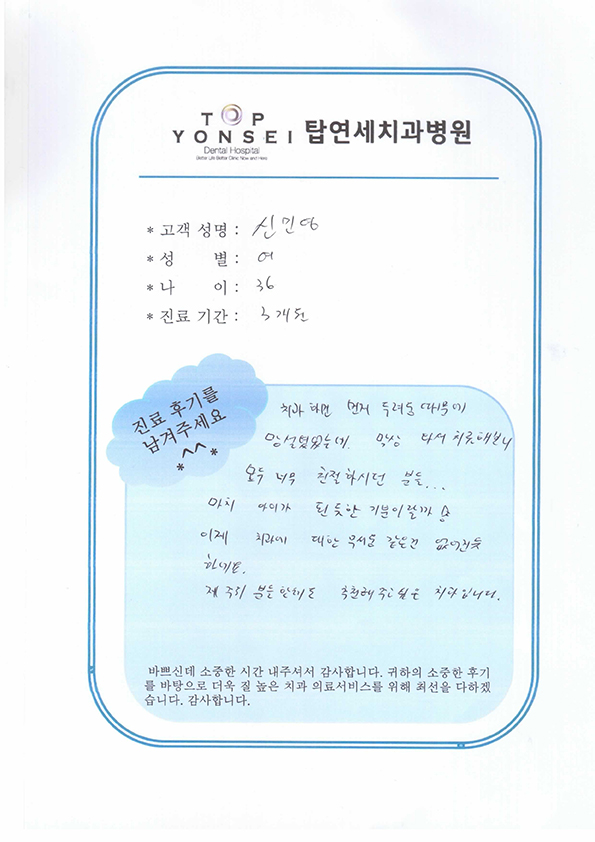 TOP
YONSEI 탑연세치과병원
Dental Hospital
Better Life Better Clinic Now and Here
* 고객 성명 : 신민영
* 성 별 : 여
* 나 이 : 36
* 진료 기간 : 3개월
진료 후기를
남겨주세요
*^^*
치과 하면 먼저 두려움 때문에
망설였었는데. 막상 와서 치료해보니
모두 너무 친절하시던 분들...
마치 아이가 된 듯한 기분이랄까
이제 치과에 대한 무서움 같은건 없어진듯
하네요.
제 주위 분들한테도 추천해주고싶은 치과입니다.
바쁘신데 소중한 시간 내주셔서 감사합니다. 귀하의 소중한 후기
를 바탕으로 더욱 질 높은 치과 의료서비스를 위해 최선을 다하겠
습니다. 감사합니다.